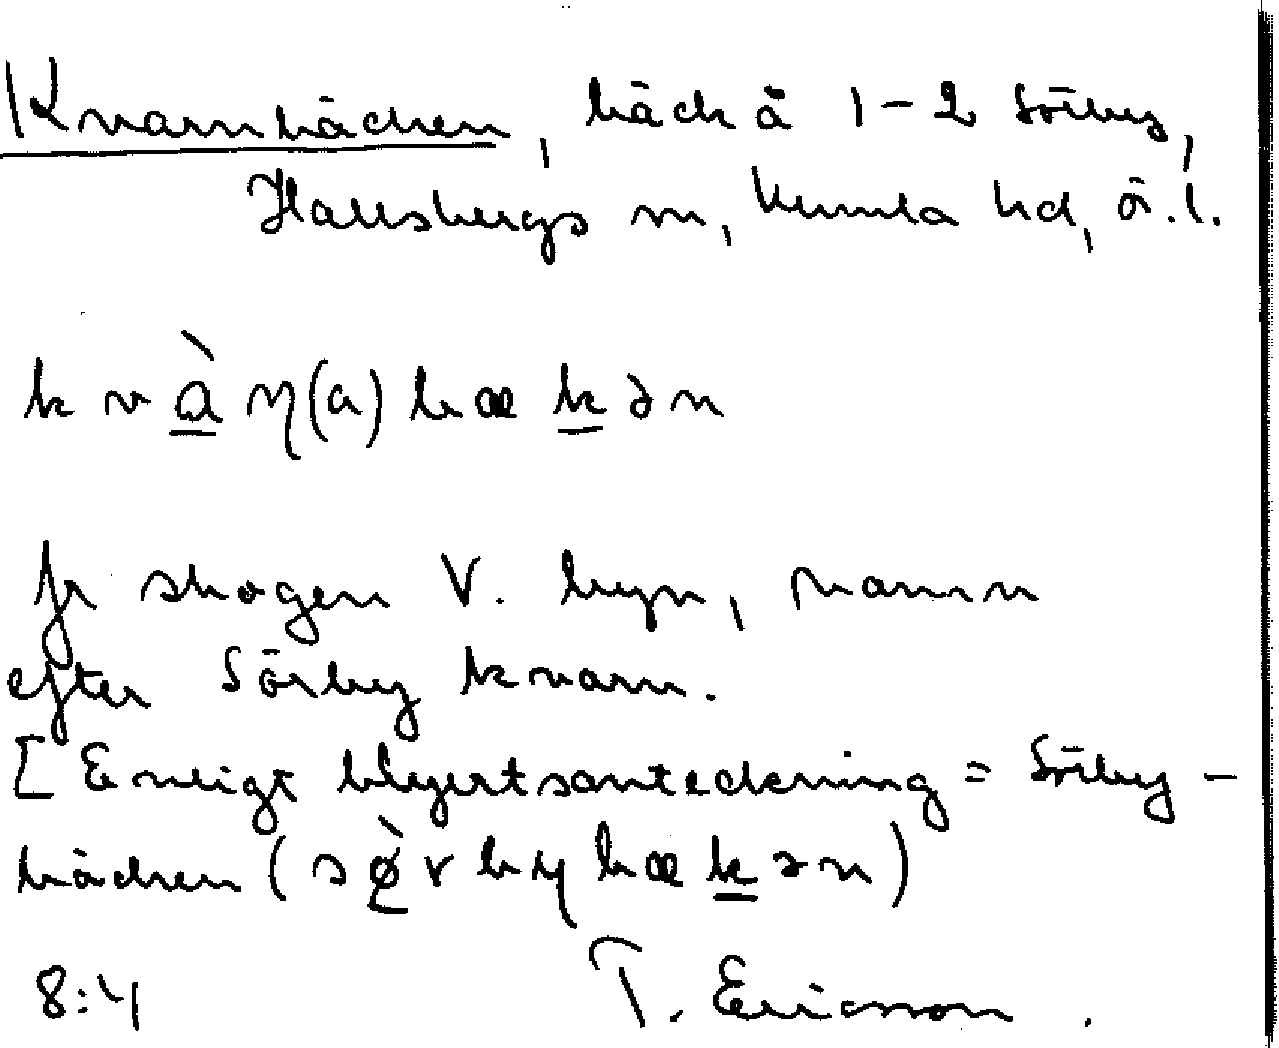 Kvarnbäcken, bäck å 1-2 Sörby,
Hallsbergs sn, Kumla hd, Ö.l.
kvàŋ(a)bækən
fr skogen V. byn, namn
efter Sörby kvarn.
[Enligt blyertsanteckning = Sörby-
bäcken (sø̀rbybækən)
8:4 T. Ericsson.